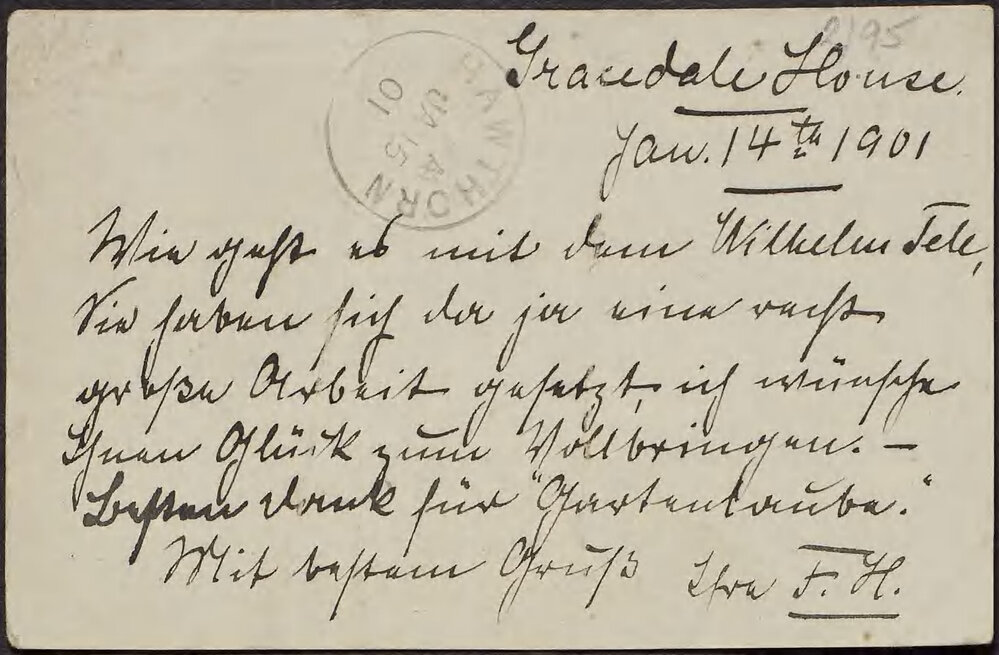 2195
Gracedale House.
HAWTHORN
JA 15
01
Jan. 14th 1901
Wie geht es mit dem Wilhelm Tele,
Sie haben sich da ja eine recht
große Arbeit gesetzt, ich wünsche
Ihnen Glück zum Vollbringen. –
Besten Dank für "Gartenlaube."
Mit bestem Gruß Ihre F. H.